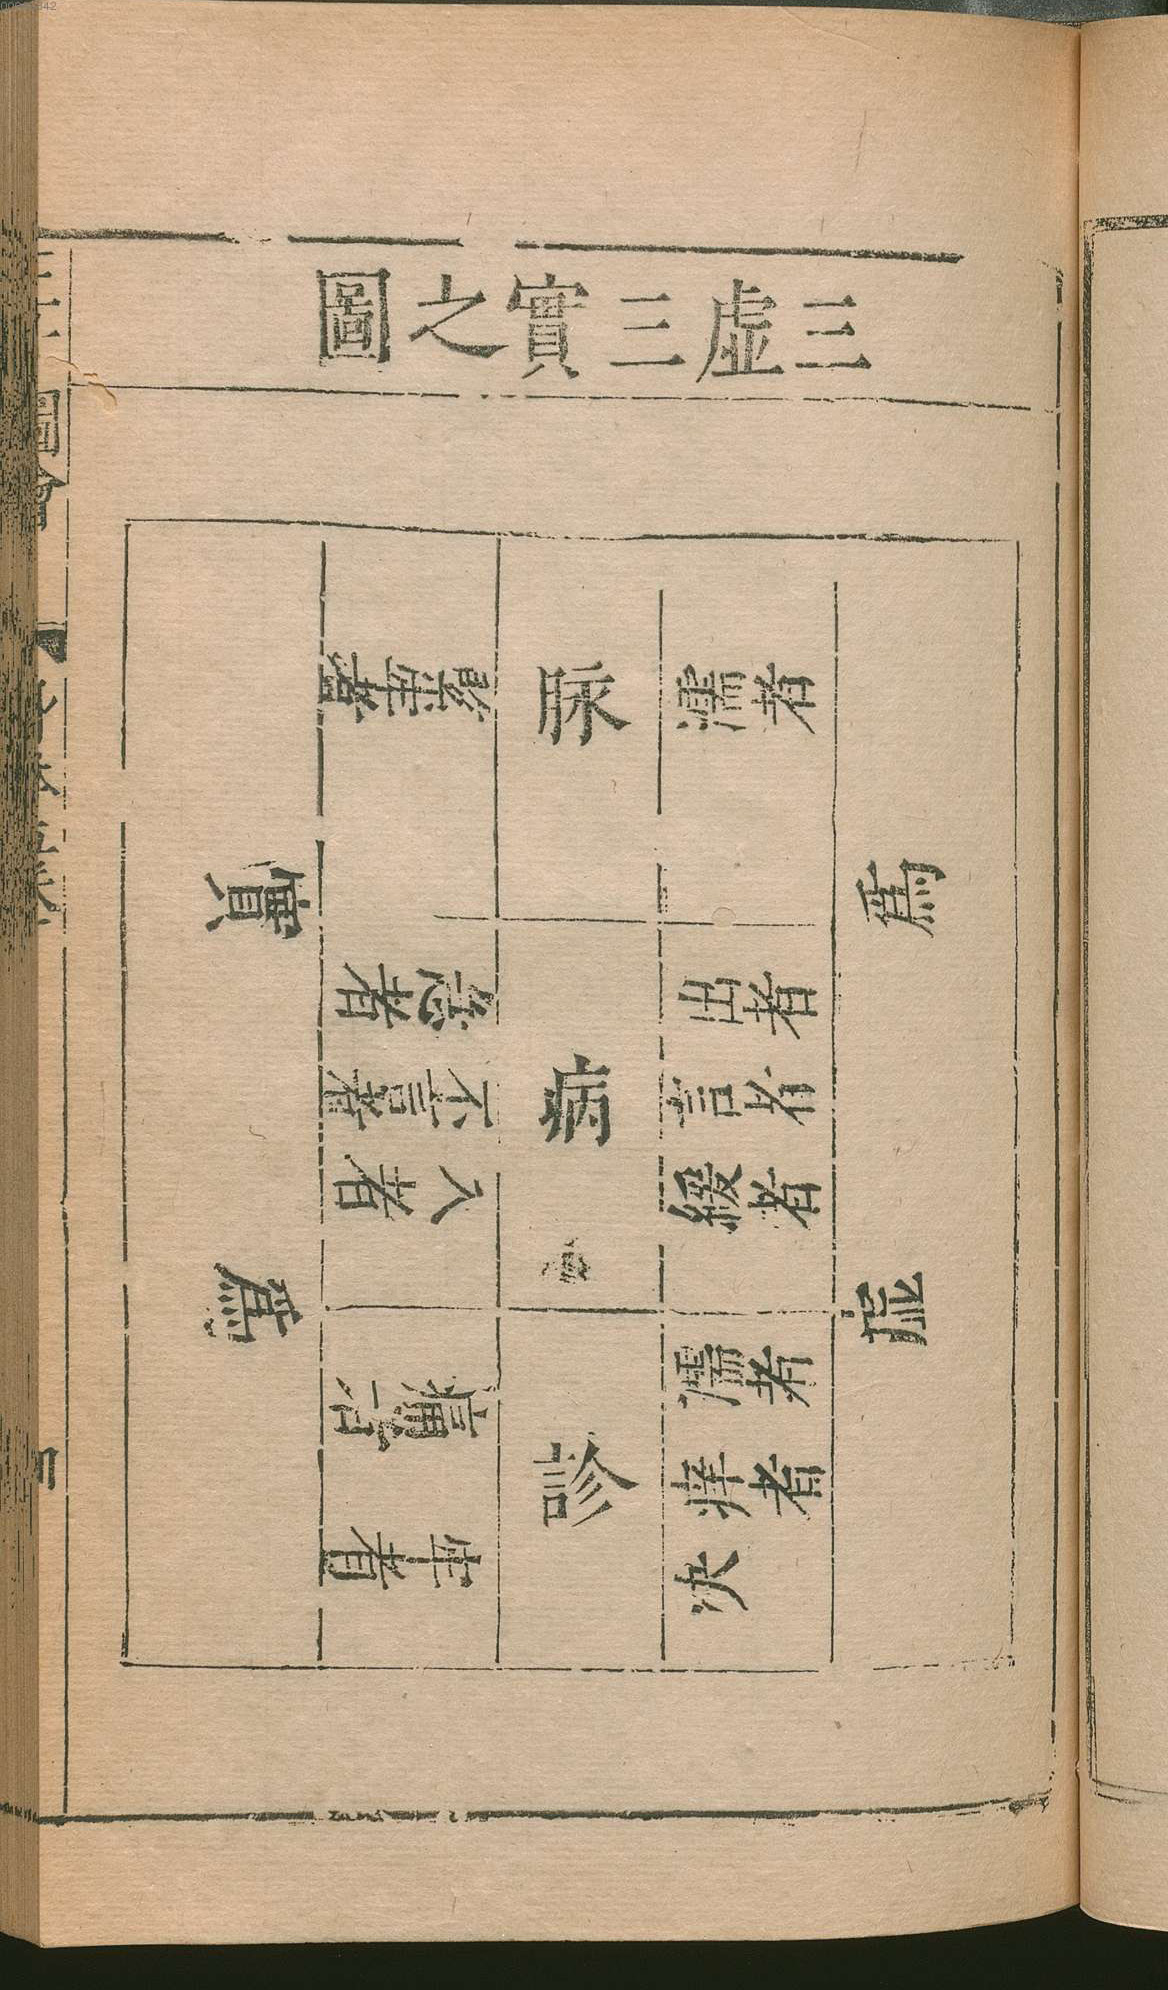 三虛三實之圖
為虛
濡者
出者
言者
緩者
濡者
痒者
脉
病
診
緊牢者
急者
不言者
入者
牢者
為實
圖會